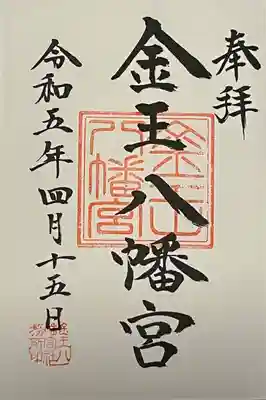 奉拝
金王八幡宮
令和五年四月十五日
金王八幡宮